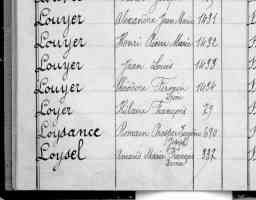 Louyer Alexandre Jean Marie 1431
Louyer Henri Pierre Marie 1432
Louyer Jean Louis 1433
Louyer Théodore Firmin 1434
Loyer Hilaire François 29
Loysance Romain Prosper 690
Joseph
Loysel Amand Marie François 337